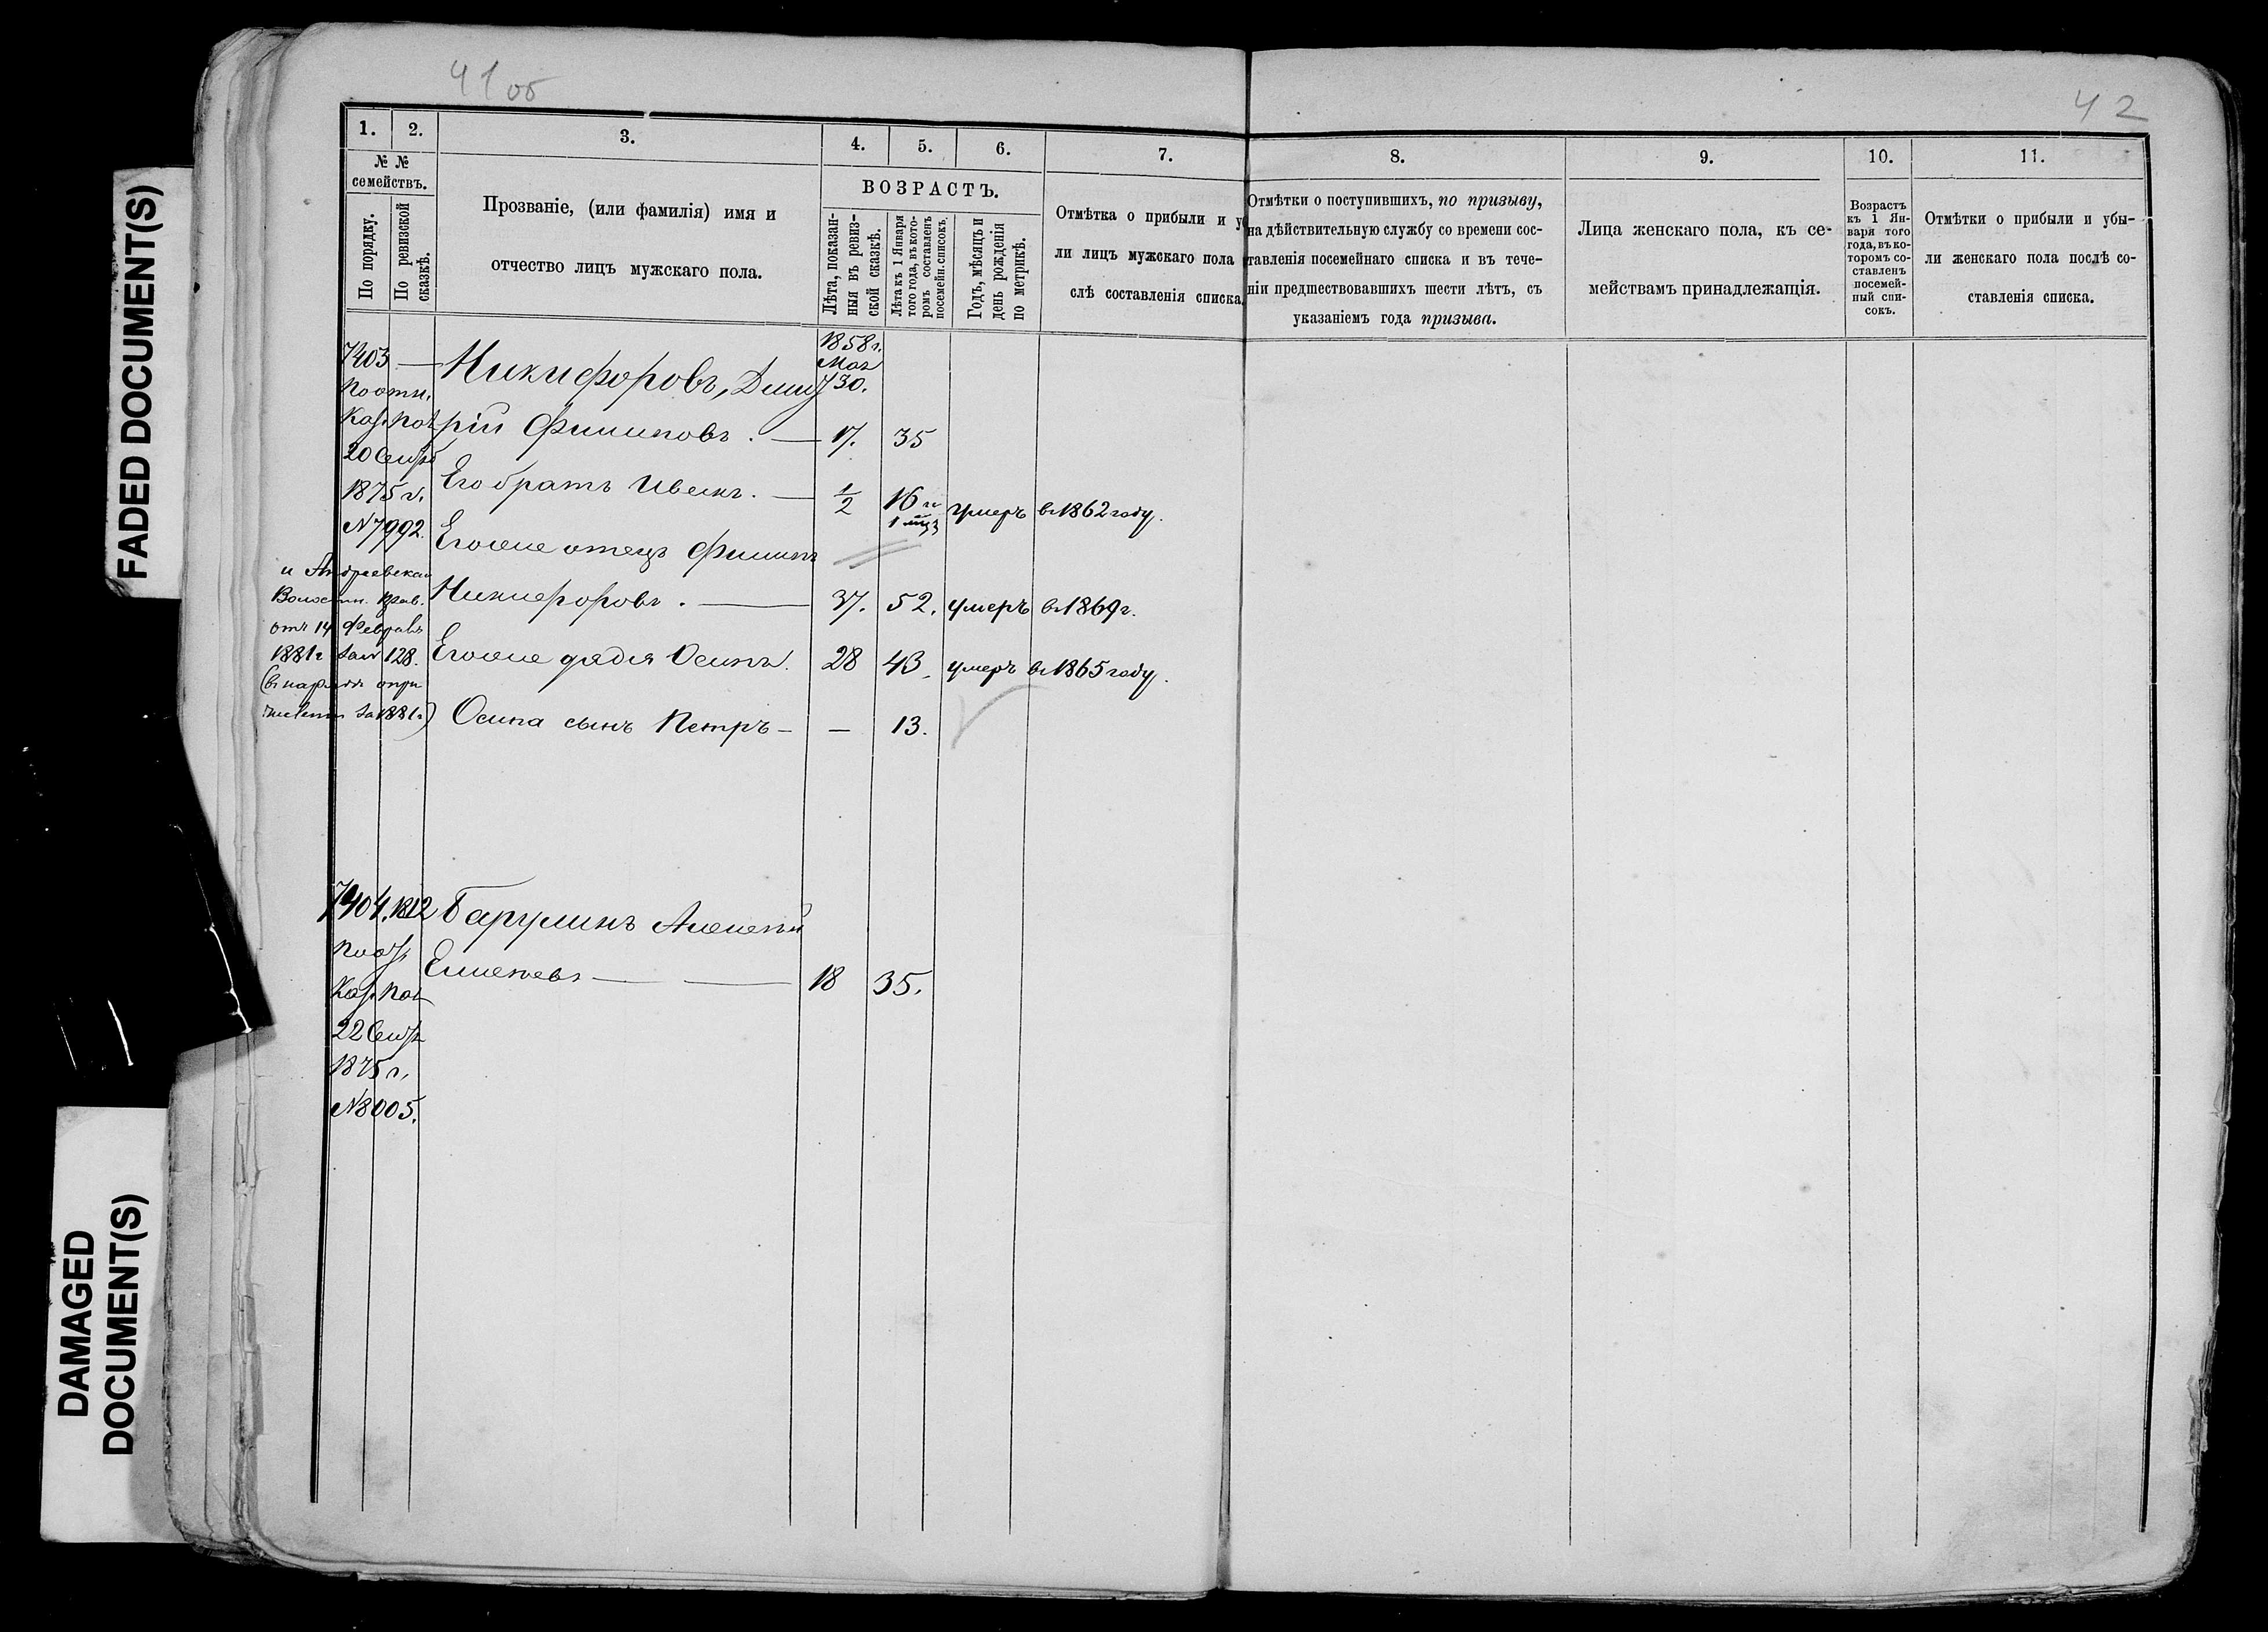 FADED DOCUMENT(S)
DAMAGED
DOCUMENT(S)
41об
42
1. 2. 3. 4. 5. 6. 7. 8. 9. 10. 11.
№ №
семействъ.
По порядку.
По ревизской
сказкѣ.
Прозваніе, (или фамилія) имя и
отчество лицъ мужскаго пола.
ВОЗРАСТЪ.
Лѣта, показан-
ныя въ ревиз-
ской сказкѣ.
Лѣта къ 1 Января
того года, въ кото-
ромъ составленъ
посемейн. списокъ.
Годъ, мѣсяцъ и
день рожденія
по метрикѣ.
Отмѣтка о прибыли и у
ли лицъ мужскаго пола
слѣ составленія списка.
Отмѣтки о поступившихъ, по призыву,
на дѣйствительную службу со времени сос-
тавленія посемейнаго списка и въ тече-
ніи предшествовавшихъ шести лѣтъ, съ
указаніемъ года призыва.
Лица женскаго пола, къ се-
мействамъ принадлежащія.
Возрастъ
къ 1 Ян-
варя того
года, въ ко-
торомъ со-
ставленъ
посемей-
ный спи-
сокъ.
Отмѣтки о прибыли и убы-
ли женскаго пола послѣ со-
ставленія списка.
1858 г.
Мая
30.
7403 — Никифоровъ, Дмит
рій Филиповъ. — 17. 35
По отн.
Каз. Пал
20 Сентб
1875 г.
№ 7992.
и Андреевскаго
Волостн. Прав.
отъ 14 Февраля
1881 г за № 128.
за 1881 г)
Его братъ Иванъ. — 1/2 16 1 мцъ умеръ въ 1862 году.
Его же отецъ Филипъ
Никифоровъ. — 37. 52. умеръ въ 1869 г.
Его же дядя Осипъ. 28 43. умеръ въ 1865 году.
Осипа сынъ Петръ — — 13.
7404. 1812 Барулинъ Алексѣй
Елисѣевъ — — 18 35.
По от
Каз. Пал
22 Сент
1875 г.
№ 8005.